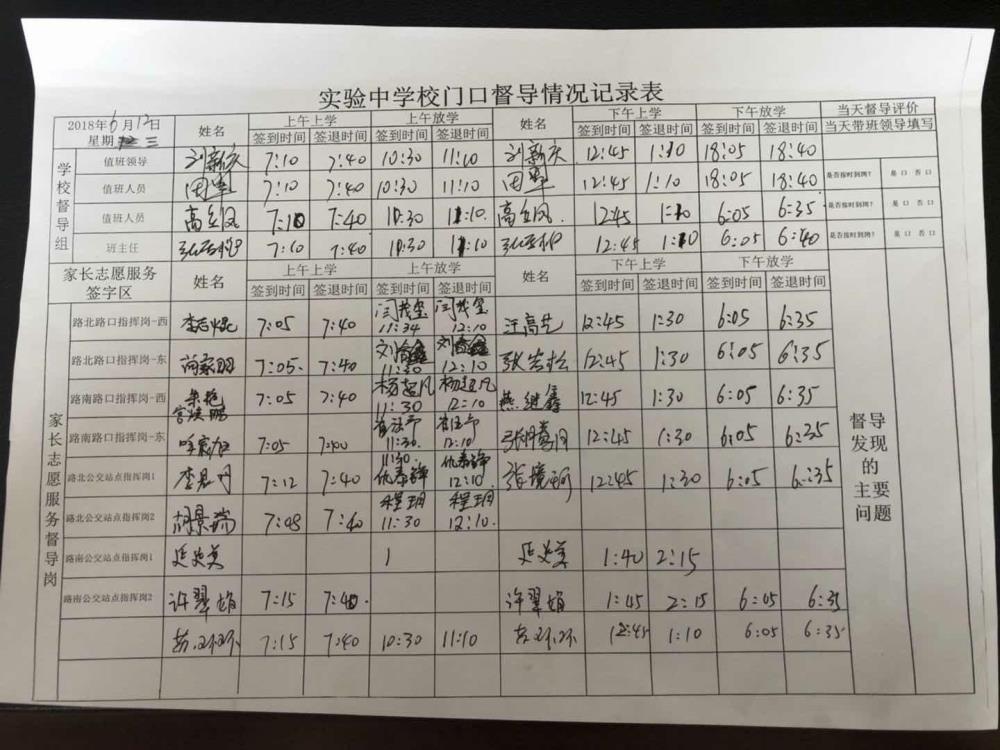 实验中学校门口督导情况记录表
2018年6月12日 星期二三 姓名 上午上学 上午放学 姓名 下午上学 下午放学 当天督导评价
签到时间 签退时间 签到时间 签退时间 签到时间 签退时间 签到时间 签退时间 当天带班领导填写
学校督导组
值班领导 刘新庆 7:10 7:40 10:30 11:10 刘新庆 12:45 1:10 18:05 18:40
值班人员 田军 7:10 7:40 10:30 11:10 田军 12:45 1:10 18:05 18:40 是否按时到岗? 是口 否口
值班人员 高立凤 7:10 7:40 10:30 11:10. 高立凤. 12:45 1:10 6:05 6:35 是否按时到岗? 是口 否口
班主任 7:10 7:40 10:30 11:10 12:45 1:10 6:05 6:40 是否按时到岗? 是口 否口
家长志愿服务签字区 姓名 上午上学 上午放学 姓名 下午上学 下午放学
签到时间 签退时间 签到时间 签退时间 签到时间 签退时间 签到时间 签退时间
家长志愿服务督导岗
路北路口指挥岗-西 李志焜 7:05 7:40 闫茂玺 11:34 闫茂玺 12:10 汪高艺 12:45 1:30 6:05 6:35
路北路口指挥岗-东 7:05. 7:40 刘鑫 11:30 刘鑫 12:10 12:45 1:30 6:05 6:35
路南路口指挥岗-西 7:05 7:40 杨超凡 11:30 杨超凡 12:10 燕继鑫 12:45 1:30 6:05 6:35
路南路口指挥岗-东 7:05 7:00 11:30. 12:10 12:45 1:30 6:05 6:35
路北公交站点指挥岗1 李君丹 7:12 7:40 11:30. 仇春锋 仇春锋 12:10. 张境珂 12:45 1:30 6:05 6:35
路北公交站点指挥岗2 胡景瑞 7:05 7:40 程玥 11:30 程玥 12:10.
路南公交站点指挥岗1 延炎美 延炎美 1:40 2:15
路南公交站点指挥岗2 许翠娟 7:15 7:40. 许翠娟 1:45 2:15 6:05 6:35
苏环环 7:15 7:40 10:30 11:10 苏环环 12:45 1:10 6:05 6:35
督导发现的主要问题